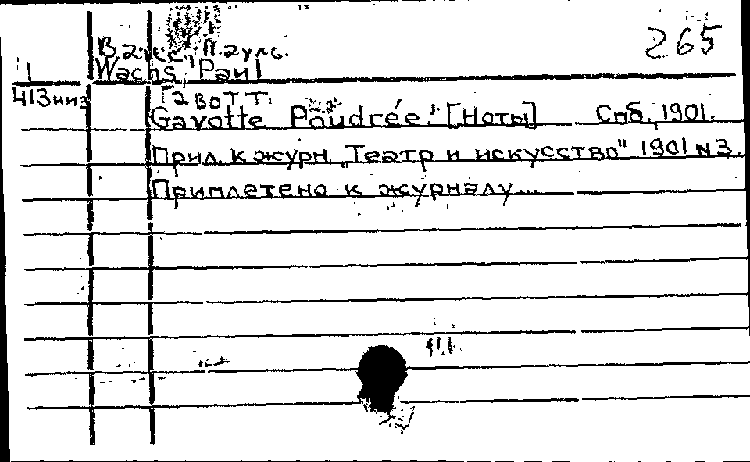 265
Вакс, Пауль.
1 Wachs, Paul
413низ Гавотт.
Gavotte Poudrée. [Ноты] Спб, 1901.
Прил. к журн „Театр и искусство" 1901 N3.
Приплетено к журналу...